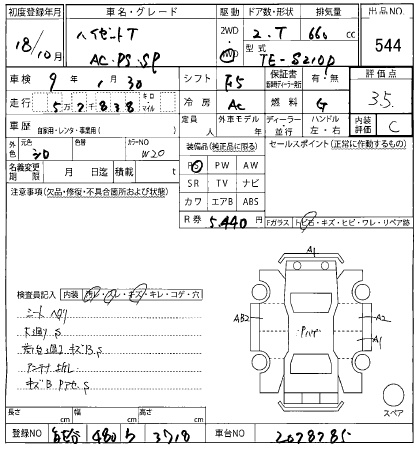 初度登録年月 車名・グレード 駆動 ドア数・形状 排気量 出品NO
18/10月 ハイゼットT 2WD 2・T 660 cc 544
AC・PS・SP 4WD 型式 TE-S210P
車検 9年1月30 シフト F5 保証書 有・無 評価点
走行 5万2828 キロ マイル 冷房 AC 燃料 G 3.5
車歴 自家用・レンタ・事業用( ) 定員 人 外車モデル 年 ディーラー・並行 ハンドル 左・右 内装評価 C
外色 元色 シロ 色替 カラーNO W20 装備品(純正品に限る) セールスポイント(正常に作動するもの)
名義変更期限 月 日迄 積載 t PS PW AW
注意事項(欠品・修復・不具合箇所および状態) SR TV ナビ
カワ エアB ABS
R券 5,440円 Fガラス トビ石・キズ・ヒビ・ワレ・リペア跡
A1
検査員記入 内装 汚レ・スレ・キズ・キレ・コゲ・穴
シートヘタリ
AB2 A2
A1
下廻りS
荷台廻りキズB,S
アンテナ
キズB Pアセ,S
スペア
長さ cm 幅 cm 高さ cm
登録NO 480 3718 車台NO 2078785